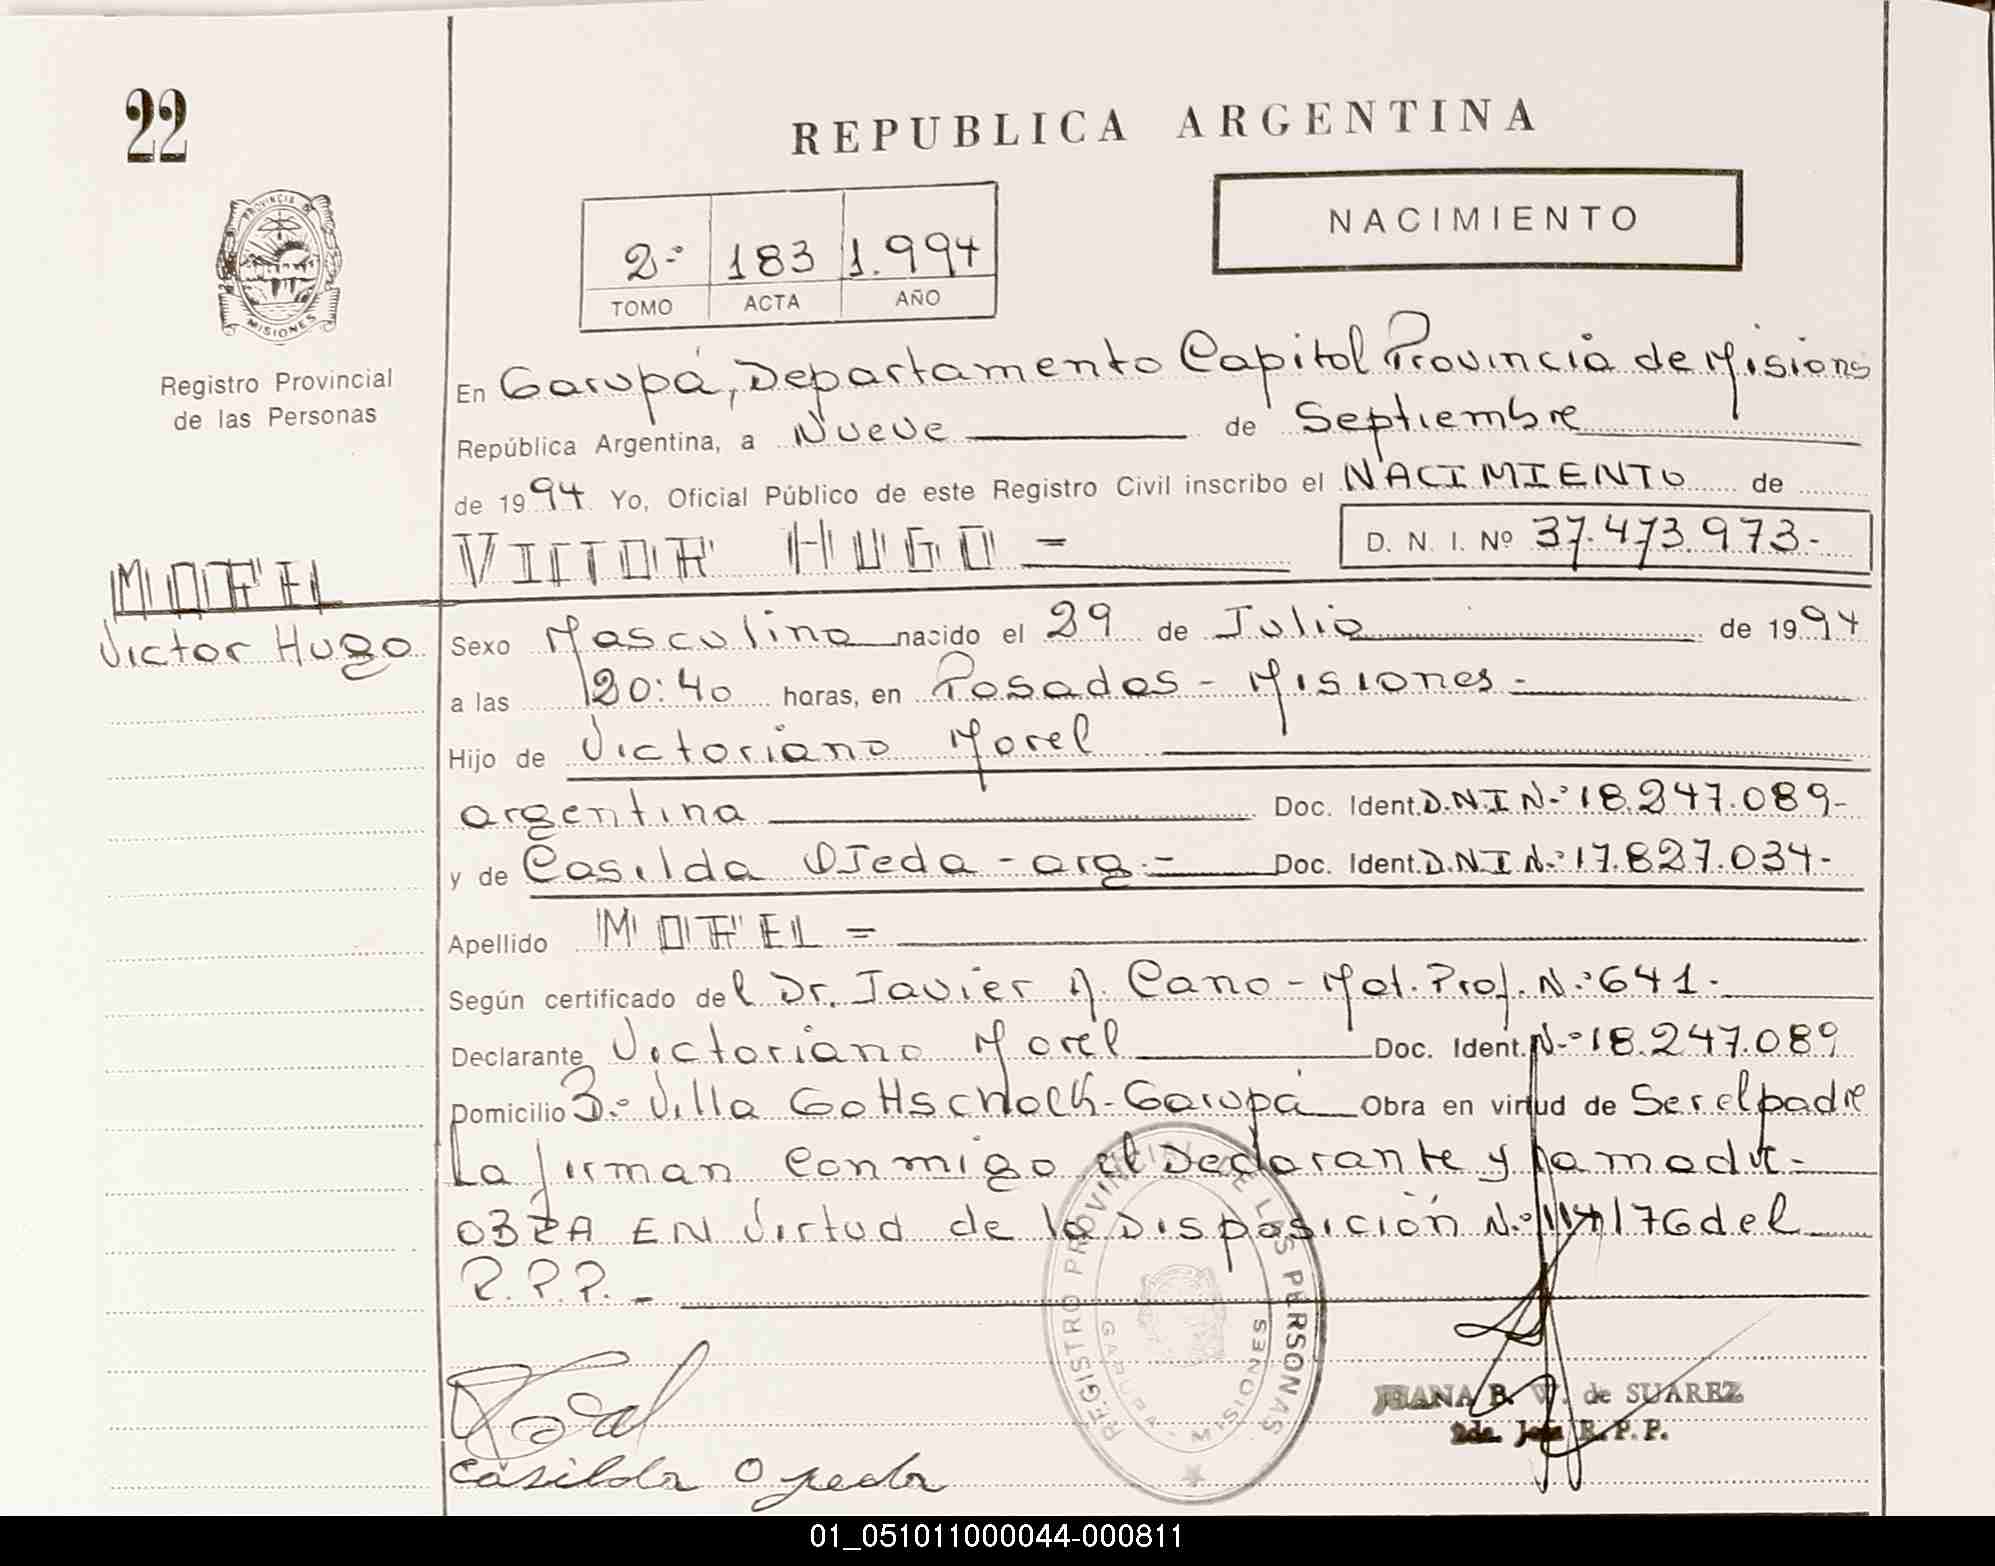 22
REPUBLICA ARGENTINA
NACIMIENTO
2º 183 1.994
TOMO ACTA AÑO
PROVINCIA DE
MISIONES
Registro Provincial
de las Personas
En Garupá, Departamento Capital Provincia de Misiones
República Argentina, a Nueve de Septiembre
de 1994 Yo, Oficial Público de este Registro Civil inscribo el NACIMIENTO de
VICTOR HUGO = D. N. I. Nº 37.473.973.-
MOREL
Victor Hugo
Sexo Masculino nacido el 29 de Julio de 1994
a las 20:40 horas, en Posadas - Misiones -
Hijo de Victoriano Morel
argentina Doc. Ident. D.N.I Nº 18.247.089-
y de Casilda OJeda - arg. = Doc. Ident. D.N.I Nº 17.827.034-
Apellido MOREL =
Según certificado del Dr. Javier A. Cano - Mat. Prof. Nº 641.
Declarante Victoriano Morel Doc. Ident. Nº 18.247.089
Domicilio 3º Villa Gottschalk - Garupá Obra en virtud de Ser el padre
La firman conmigo el Declarante y la madre -
OBRA EN Virtud de la Disposición Nº /76 del
R.P.P. -
REGISTRO PROVINCIAL DE LAS PERSONAS
GARUPA - MISIONES
JUANA B. W. de SUAREZ
2da. Jefa R. P. P.
Casilda Ojeda
01_051011000044-000811